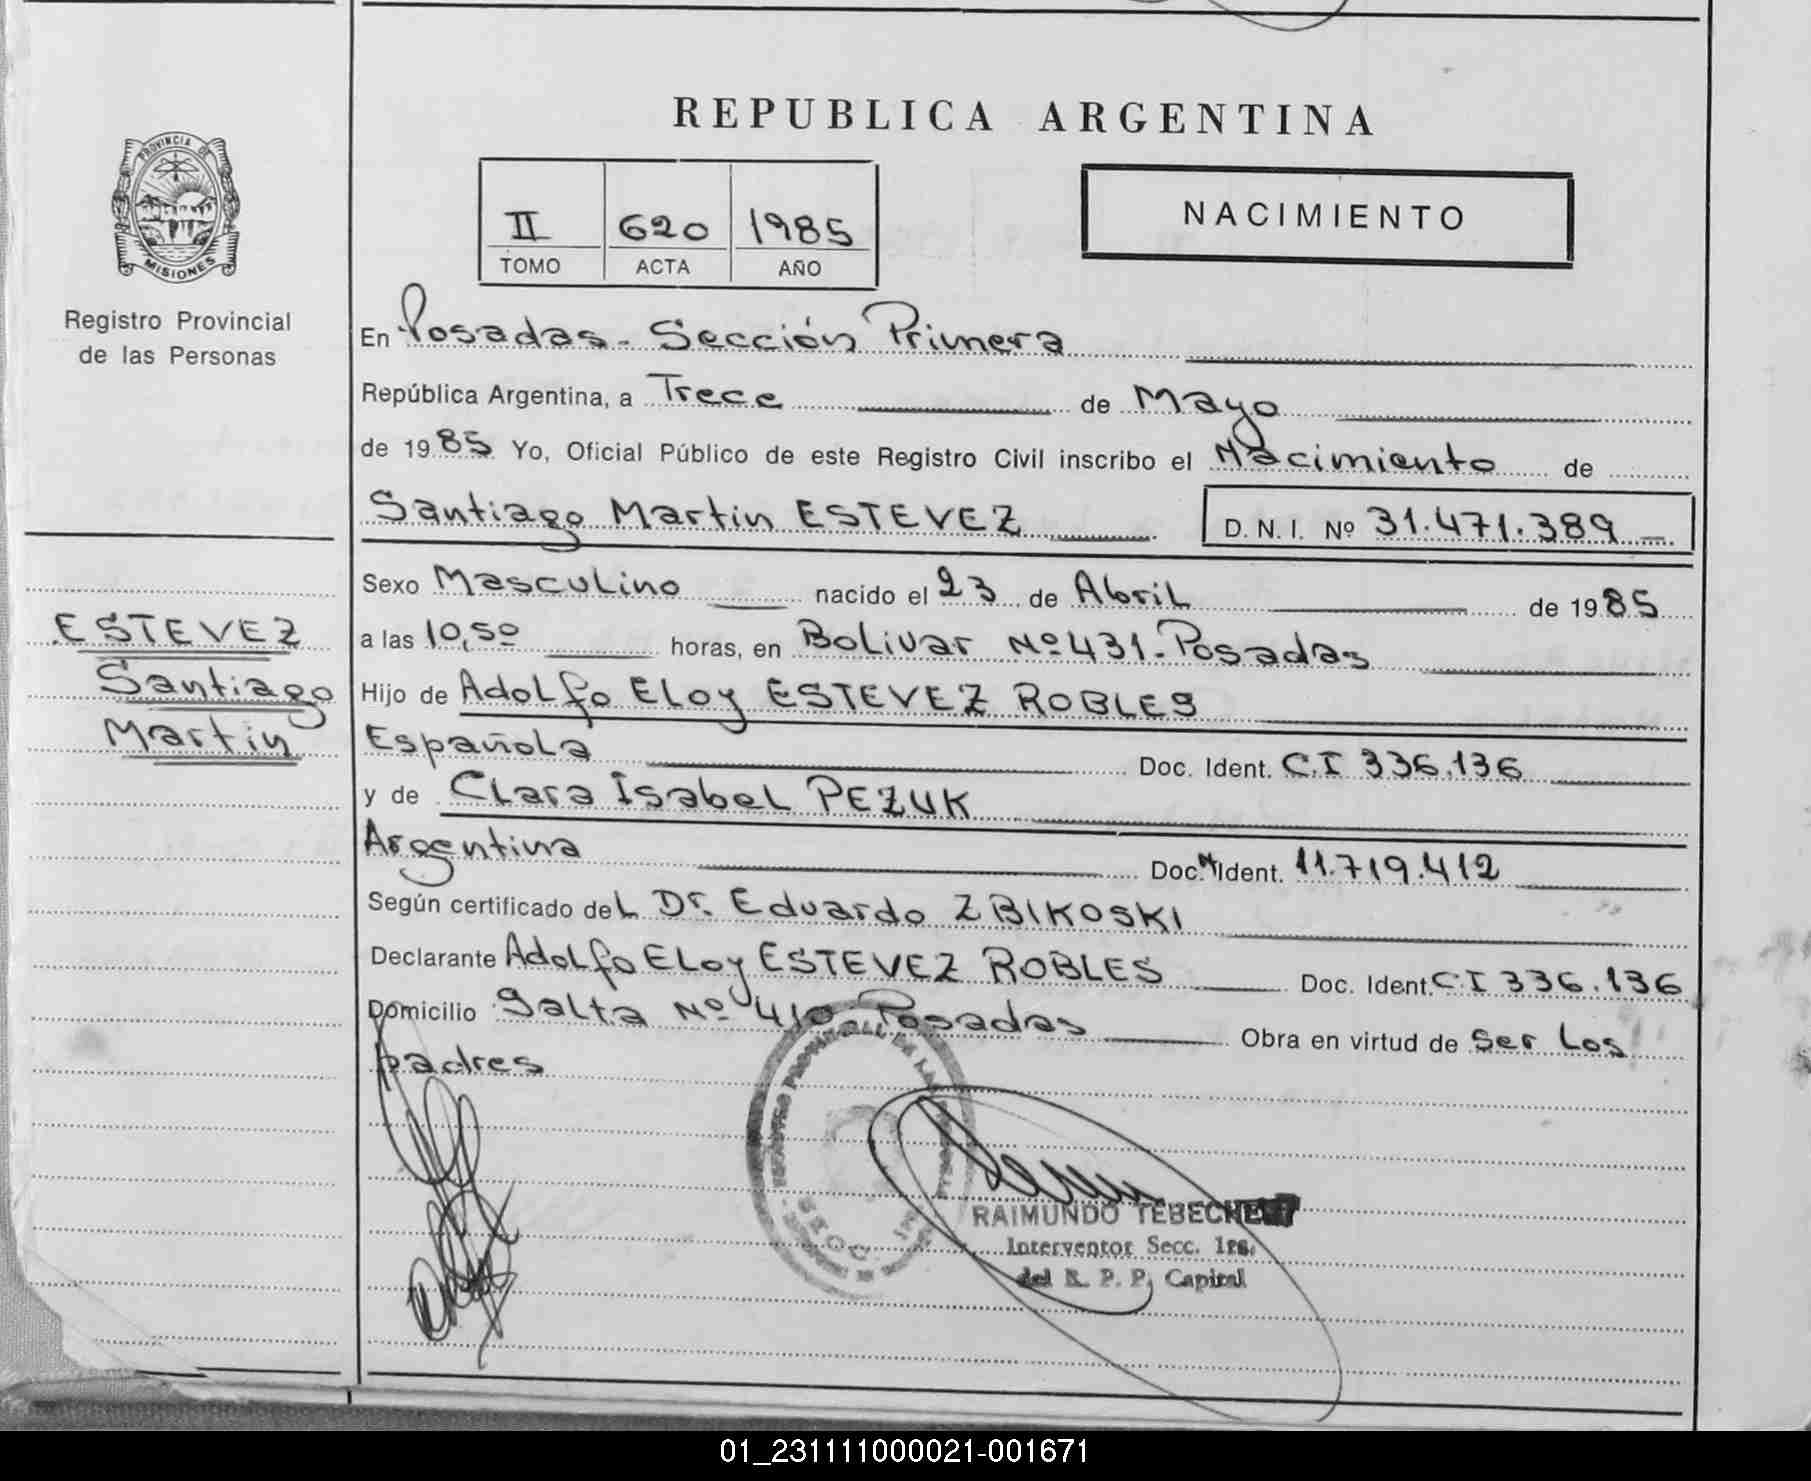 REPUBLICA ARGENTINA
PROVINCIA DE
MISIONES
Registro Provincial
de las Personas
II 620 1985
TOMO ACTA AÑO
NACIMIENTO
En Posadas - Sección Primera
República Argentina, a Trece de Mayo
de 1985 Yo, Oficial Público de este Registro Civil inscribo el Nacimiento de
Santiago Martin ESTEVEZ D. N. I. Nº 31.471.389
ESTEVEZ
Santiago
Martin
Sexo Masculino nacido el 23 de Abril de 1985
a las 10,50 horas, en Bolivar Nº 431 - Posadas
Hijo de Adolfo Eloy ESTEVEZ ROBLES
Española Doc. Ident. C.I 336.136
y de Clara Isabel PEZUK
Argentina Doc. N Ident. 11.719.412
Según certificado del Dr. Eduardo ZBIKOSKI
Declarante Adolfo Eloy ESTEVEZ ROBLES Doc. Ident. C.I 336.136
Domicilio Salta Nº 410 Posadas Obra en virtud de Ser Los
padres
RAIMUNDO TEBECHE
Interventor Secc. 1ra.
del R. P. P. Capital
01_231111000021-001671